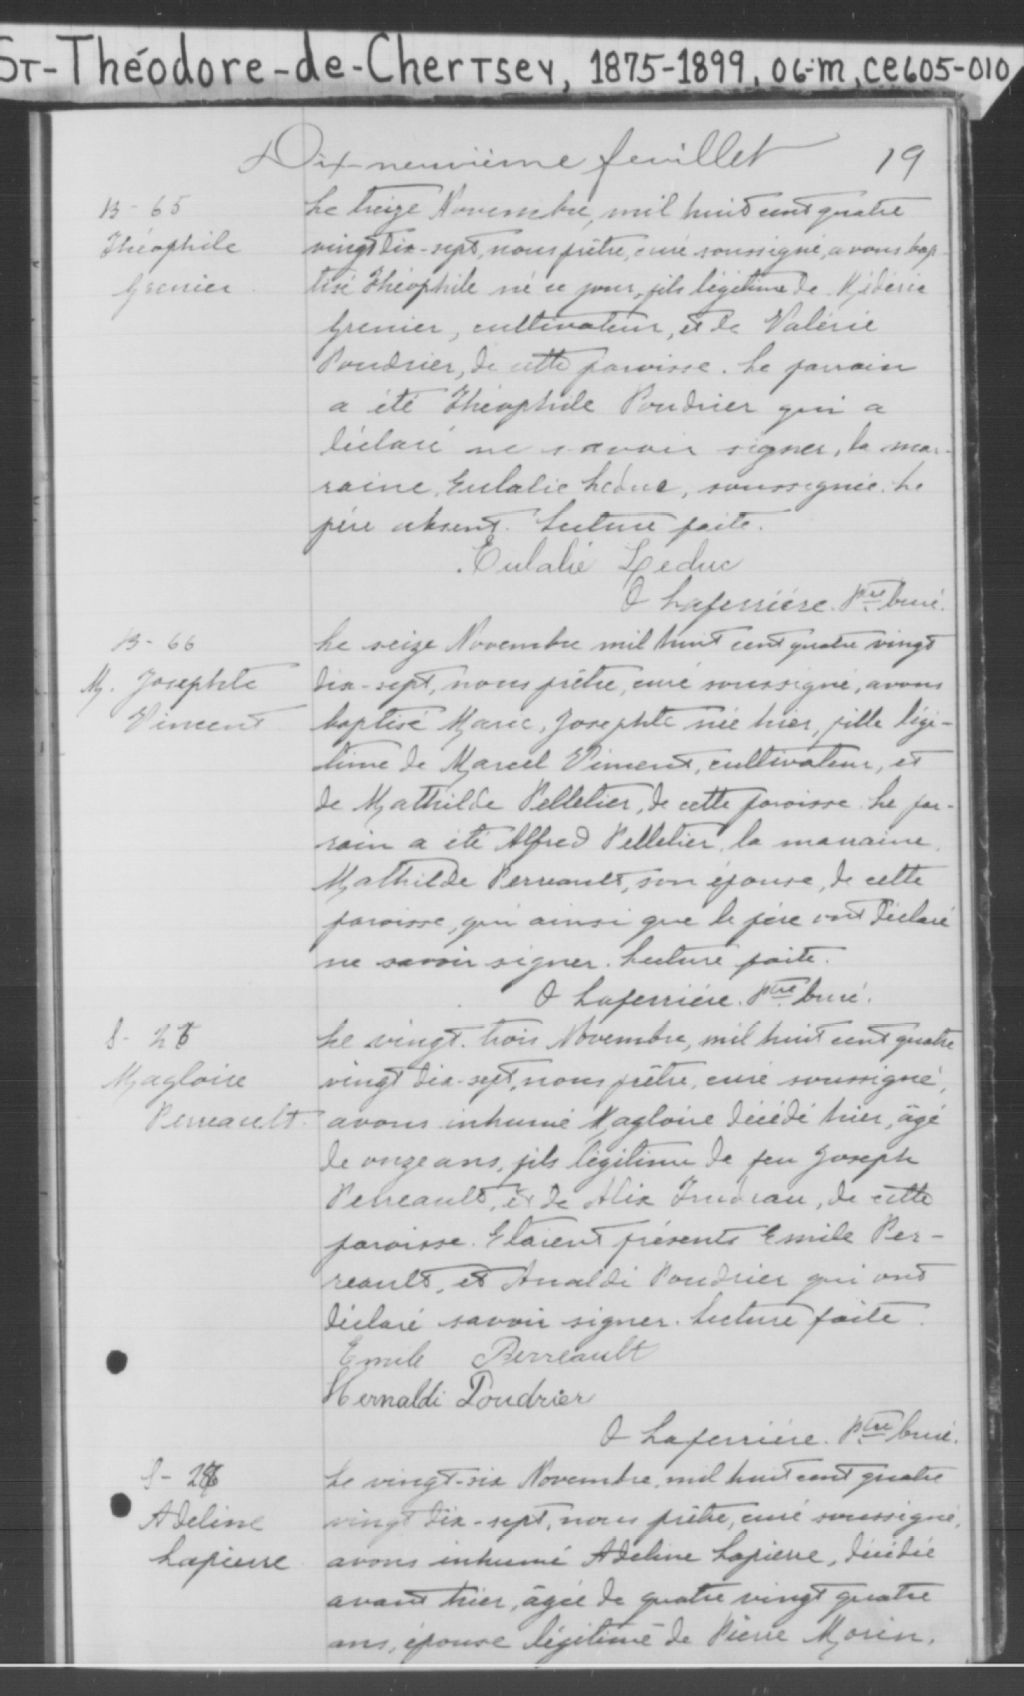 ST-Théodore-de-Chertsey, 1875-1899, 06-m, CE605-010
Dix-neuvième feuillet 19
B - 65
Théophile
Grenier.
Le treize Novembre, mil huit cent quatre
vingt dix-sept, nous prêtre, curé soussigné, avons bap-
tisé Théophile né ce jour, fils légitime de Médéric
Grenier, cultivateur, et de Valérie
Poudrier, de cette paroisse. Le parrain
a été Théophile Poudrier qui a
déclaré ne savoir signer, la mar-
raine, Eulalie Leduc, soussignée. Le
père absent. Lecture faite.
Eulalie Leduc
O Laferrière. Ptre Curé.
B - 66
M. Josephte
Vincent
Le seize Novembre mil huit cent quatre vingt
dix-sept, nous prêtre, curé soussigné, avons
baptisé Marie, Josephte née hier, fille légi-
time de Marcel Vincent, cultivateur, et
de Mathilde Pelletier, de cette paroisse. Le par-
rain a été Alfred Pelletier, la marraine,
Mathilde Perreault, son épouse, de cette
paroisse, qui ainsi que le père ont déclaré
ne savoir signer. Lecture faite.
O Laferrière. Ptre Curé.
S -
Magloire
Perreault.
Le vingt-trois Novembre, mil huit cent quatre
vingt dix-sept, nous prêtre, curé soussigné,
avons inhumé Magloire décédé hier, âgé
de onze ans, fils légitime de feu Joseph
Perreault, et de Alix Trudeau, de cette
paroisse. Etaient présents Emile Per-
reault, et Analdi Poudrier qui ont
déclaré savoir signer. Lecture faite.
Emile Perreault
Hernaldi Poudrier
O Laferrière. Ptre Curé.
S -
Adeline
Lapierre
Le vingt-six Novembre, mil huit cent quatre
vingt dix-sept, nous prêtre, curé soussigné,
avons inhumé Adeline Lapierre, décédée
avant hier, âgée de quatre vingt quatre
ans, épouse légitime de Pierre Morin,